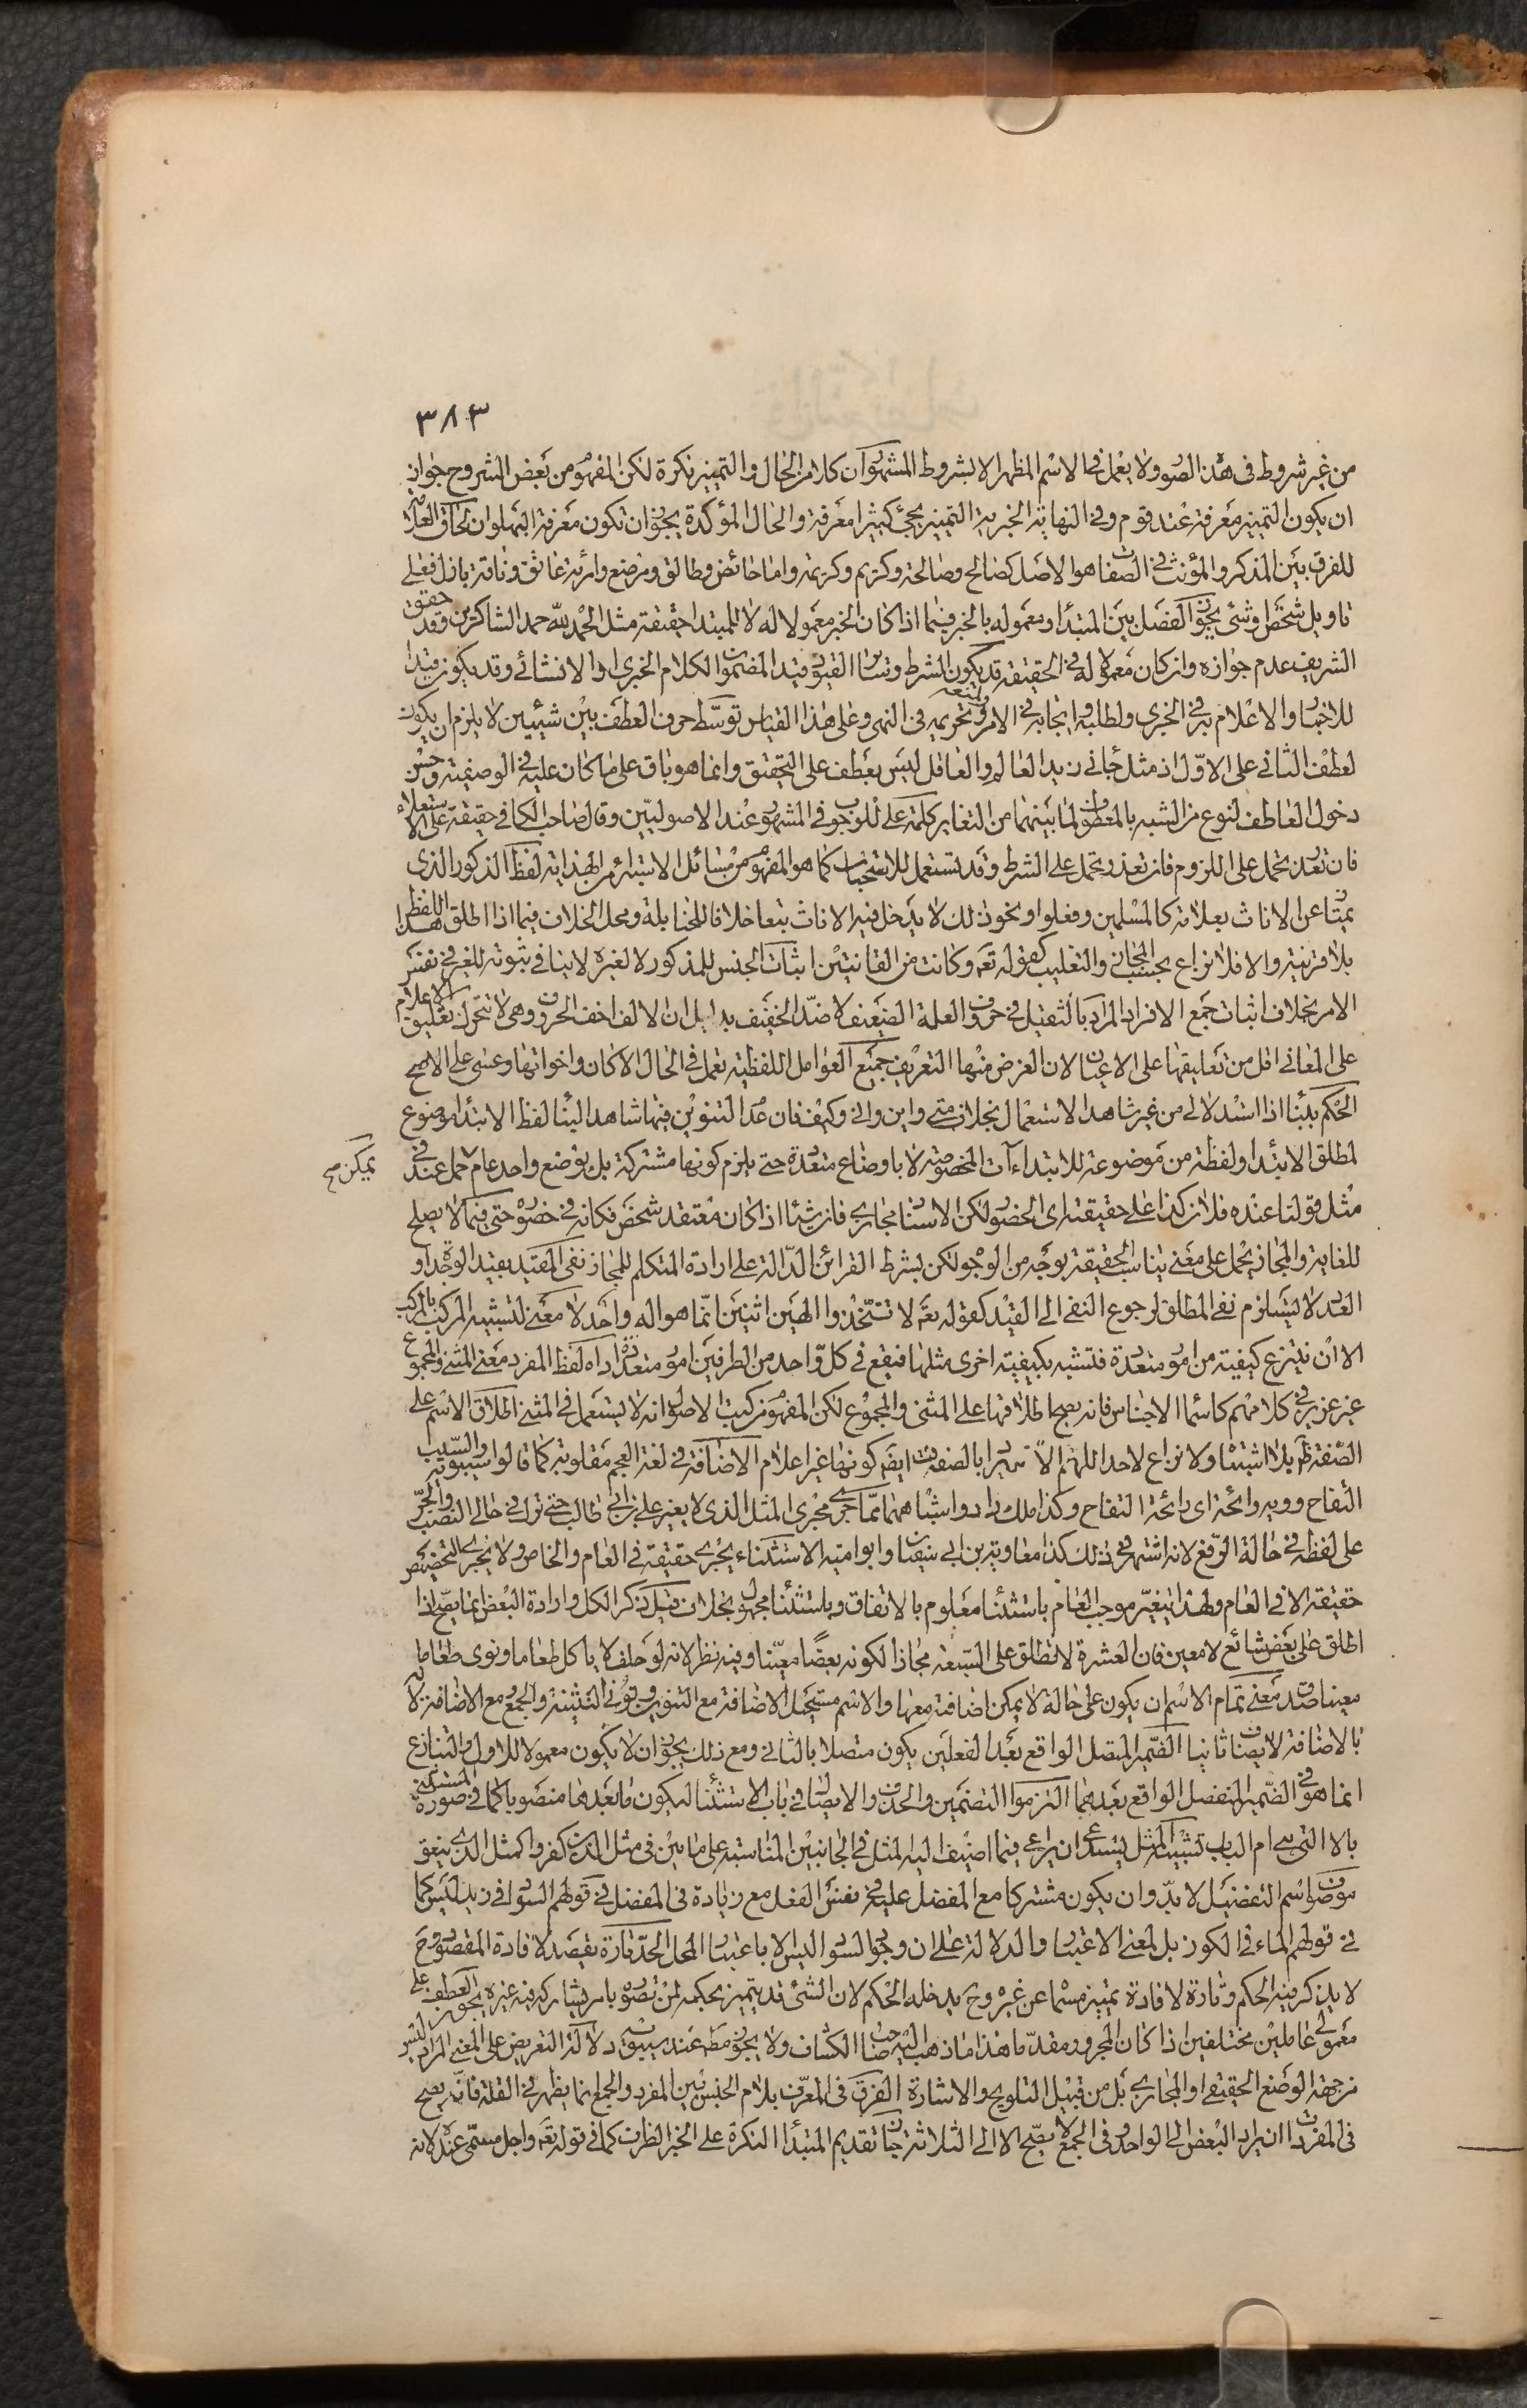 ٣٨٣
من غير شروط فى هذه الصور ولا يعمل فى الاسم المظهر الا بشروط المشهور ان كلا من الحال والتمييز نكرة لكن المفهوم من بعض الشروح جواز
ان يكون التمييز معرفة عند قوم وفى النهاية الخبرية التمييز يجئ كثيرا معرفة والحال المؤكدة يجوز ان تكون معرفة التحاق العلامة
للفرق بين المذكر والمؤنث فى الصفات هو الاصل كصالح وصالحة وكريم وكريمة واما حائض وطالق ومرضع وامرئة عاشق وناقة بازل فعلى
تاويل شخص او شئ يجوز الفصل بين المبتدا ومعموله بالخبر فيما اذا كان الخبر معمولا له لا للمبتدا حقيقة مثل الحمد لله حمد الشاكرين وقد حقق
الشريف عدم جوازه وان كان معمولا له فى الحقيقة قد يكون الشرط وسائر القيود قيدا لمضمون الكلام الخبرى او الانشائى وقد يكون قيدا
للاخبار والاعلام به فى الخبرى ولطلبه وايجابه فى الامر ومنعه وتحريمه فى النهى وعلى هذا القياس توسط حرف العطف بين شيئين لا يلزم ان يكون
لعطف الثانى على الاول اذ مثل جانى زيد العالم والعاقل ليس بعطف على التحقيق وانما هو باق على ما كان عليه فى الوصفية وحسن
دخول العاطف لنوع من الشبه بالمعطوف لما بينهما من التغاير كلمة على للوجوب فى المشهور عند الاصوليين وقال صاحب الكافى حقيقة على الاستعلاء
فان تعذر يحمل على اللزوم فان تعذر يحمل على الشرط وقد تستعمل للاستحباب كما هو المفهوم من مسائل الاستبراء من الهداية لفظ الذكور الذى
يمتاز عن الاناث بعلامة كالمسلمين وفعلوا ونحو ذلك لا يدخل فيه الاناث تبعا خلافا للحنابلة ومحل الخلاف فيما اذا اطلق هذا اللفظ
بلا قرينة والا فلا نزاع بحسب المجاز والتغليب كقوله تعه وكانت من القانتين اثبات الجنس للمذكور لا لغيره لا ينافى ثبوته للغير فى نفس
الامر بخلاف اثبات جمع الافراد المراد بالثقيل فى حروف العلة الضعيف لا ضد الخفيف بدليل ان الالف اخف الحروف وهى لا تتحرك تعليق الاعلام
على المعانى اقل من تعليقها على الاعيان لان الغرض منها التعريف جميع العوامل اللفظية تعمل فى الحال الا كان واخواتها وعسى على الاصح
الحكم ببنا اذا استدلالى من غير شاهد الاستعمال بخلاف متى واين وانى وكيف فان عدم التنوين فيها شاهد البنا لفظ الابتدا موضوع
لمطلق الابتدا ولفظة من موضوعة للابتداءآت المخصوصة لا باوضاع متعددة حتى يلزم كونها مشتركة بل بوضع واحد عام حمل عند فى
يمكن صح
مثل قولنا عنده فلان كذا على حقيقته اى الحضور لكن الاسناد مجازى فان شيئا اذا كان معتقد شخص فكانه فى حضوره حتى فيما لا يصلح
للغاية والمجاز يحمل على معنى يناسب الحقيقة بوجه من الوجوه لكن بشرط القرائن الدالة على ارادة المتكلم للمجاز نفى المقيد بقيد الوحدة او
العدد لا يستلزم نفى المطلق لرجوع النفى الى القيد كقوله تعه لا تتخذوا الهين اثنين انما هو اله واحد لا معنى لتشبيه المركب بالمركب
الا ان ينتزع كيفية من امور متعددة فتشبه بكيفية اخرى مثلها فيقع فى كل واحد من الطرفين امور متعددة ارادة لفظ المفرد معنى المثنى والمجموع
غير عزيز فى كلامهم كاسما الاجناس فانه يصح اطلاقها على المثنى والمجموع لكن المفهوم من كتب الاصول انه لا يستعمل فى المثنى اطلاق الاسم على
الصفة ظه بلا اشتباه ولا نزاع لاحد اللهم الا ان يراد بالصفة ايضه كونها غير اعلام الاضافة فى لغة العجم مقلوبة كما قالوا سيبويه والسيب
التفاح وويه رائحة اى رائحة التفاح وكذا ملك داد واشباههما مما جرى مجرى المثل الذى لا يغير على بن ابى طالب حتى ترك فى حالى النصب والجر
على لفظه فى حالة الرفع لانه اشتهر فى ذلك كذا معاوية بن ابى سفيان وابو امية الاستثناء يجرى حقيقة فى العام والخاص ولا يجرى التخصيص
حقيقة الا فى العام ولهذا يتغير موجب العام باستثنا معلوم بالاتفاق وباستثنا مجهول بخلاف قبل ذكر الكل وارادة البعض انما يصح اذا
اطلق على بعض شائع لا معين فان العشرة لا تطلق على السبعة مجازا لكونه بعضا معينا وفيه نظر لانه لو حلف لا ياكل طعاما ونوى طعاما
معينا صدق معنى تمام الاسم ان يكون على حالة لا يمكن اضافته معها والاسم مستحيل الاضافة مع التنوين ونونى التثنية والجمع ومع الاضافة لانه
بالاضافة لا يضاف ثانيا الضمير المتصل الواقع بعد الفعلين يكون متصلا بالثانى ومع ذلك يجوز ان لا يكون معمولا للاول والتنازع
انما هو فى الضمير المنفصل الواقع بعدهما التزموا التضمين والحذف والايصال فى باب الاستثنا ليكون ما بعدها منصوبا كما فى صورة المستثنى
بالا التى هى ام الباب تشبيه المثل يستدعى ان يراعى فيما اضيف اليه المثل فى الجانبين المناسبة على ما بين فى مثل الذين كفروا كمثل الذى ينعق
موصوف اسم التفضيل لا بد وان يكون مشتركا مع المفضل عليه فى نفس الفعل مع زيادة فى المفضل فى قولهم السواد فى زيد ليس كما
فى قولهم الماء فى الكوز بل لمعنى الاعتبار والدلالة على ان وجود السواد ليس الا باعتبار المحل الحد تارة يقصد لافادة المقصود وح
لا يذكر فيه الحكم وتارة لافادة تمييز مسما عن غيره وح يدخله الحكم لان الشئ قد يتميز بحكمه لمن تصوره بامر يشاركه فيه غيره يجوز العطف على
معمولى عاملين مختلفين اذا كان المجرور مقدما هذا ما ذهب اليه صاحب الكشاف ولا يجوز مطه عند سيبويه دلالة التعريض على المعنى المراد ليس
من جهة الوضع الحقيقى او المجازى بل من قبيل التلويح والاشارة الفرق فى المعرف بلام الجنس بين المفرد والجمع انما يظهر فى القلة فانه يصح
فى المفرد ان يراد البعض الى الواحد وفى الجمع لا يصح الا الى الثلاثة جاز تقديم المبتدا النكرة على الخبر الظرف كما فى قوله تعه واجل مسمى عنده لانه